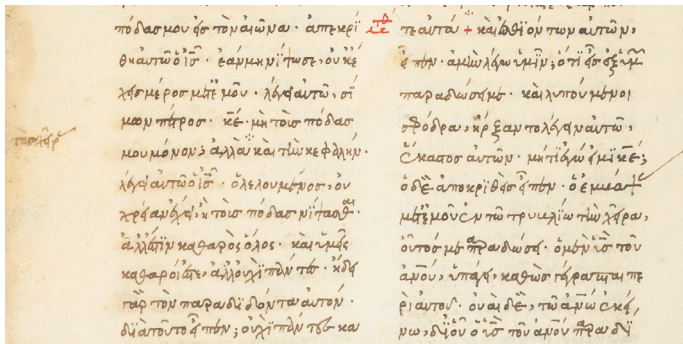 πόδας μου εἰς τὸν αἰῶνα · ἀπεκρί
θη αὐτῶ ὁ ἰς · ἐὰν μὴ νίψω σε, οὐκ ἔ
χεις μέρος μετ ἐμοῦ · λέγει αὐτῶ, σί
μων πέτρος · κε · μὴ τοὺς πόδας
μου μόνον; ἀλλὰ καὶ τὰς χεῖρας καὶ τὴν κεφαλήν ·
λέγει αὐτῶ ὁ ἰς · ὁ λελουμένος, οὐ
χρείαν ἔχει, ἢ τοὺς πόδας νίψασθαι
ἀλλ ἔστιν καθαρὸς ὅλος · καὶ ὑμεῖς
καθαροί ἐστε, ἀλλ οὐχὶ πάντες · ἤδει
γὰρ τὸν παραδιδόντα αὐτόν ·
διὰ τοῦτο εἶπεν; οὐχὶ πάντες κα
τε αὐτῶν + καὶ ἐσθιόντων αὐτῶν,
εἶπεν · ἀμὴν λέγω ὑμῖν; ὅτι εἷς ἐξ ὑμῶν
παραδώσει με · καὶ λυπούμενοι
σφόδρα, ἤρξαντο λέγειν αὐτῶ,
ἕκαστος αὐτῶν · μήτι ἐγώ εἰμι κε;
ὁ δὲ ἀποκριθεὶς εἶπεν · ὁ ἐμβάψας
μετ ἐμοῦ ἐν τῶ τρυβλίω τὴν χεῖρα,
οὗτός με παραδώσει · ὁ μὲν υἱὸς τοῦ
ἀνου, ὑπάγει, καθὼς γέγραπται πε
ρὶ αὐτοῦ · οὐαὶ δὲ, τῶ ἀνω ἐκεί
νω, δι οὗ ὁ υἱὸς τοῦ ἀνου παραδί